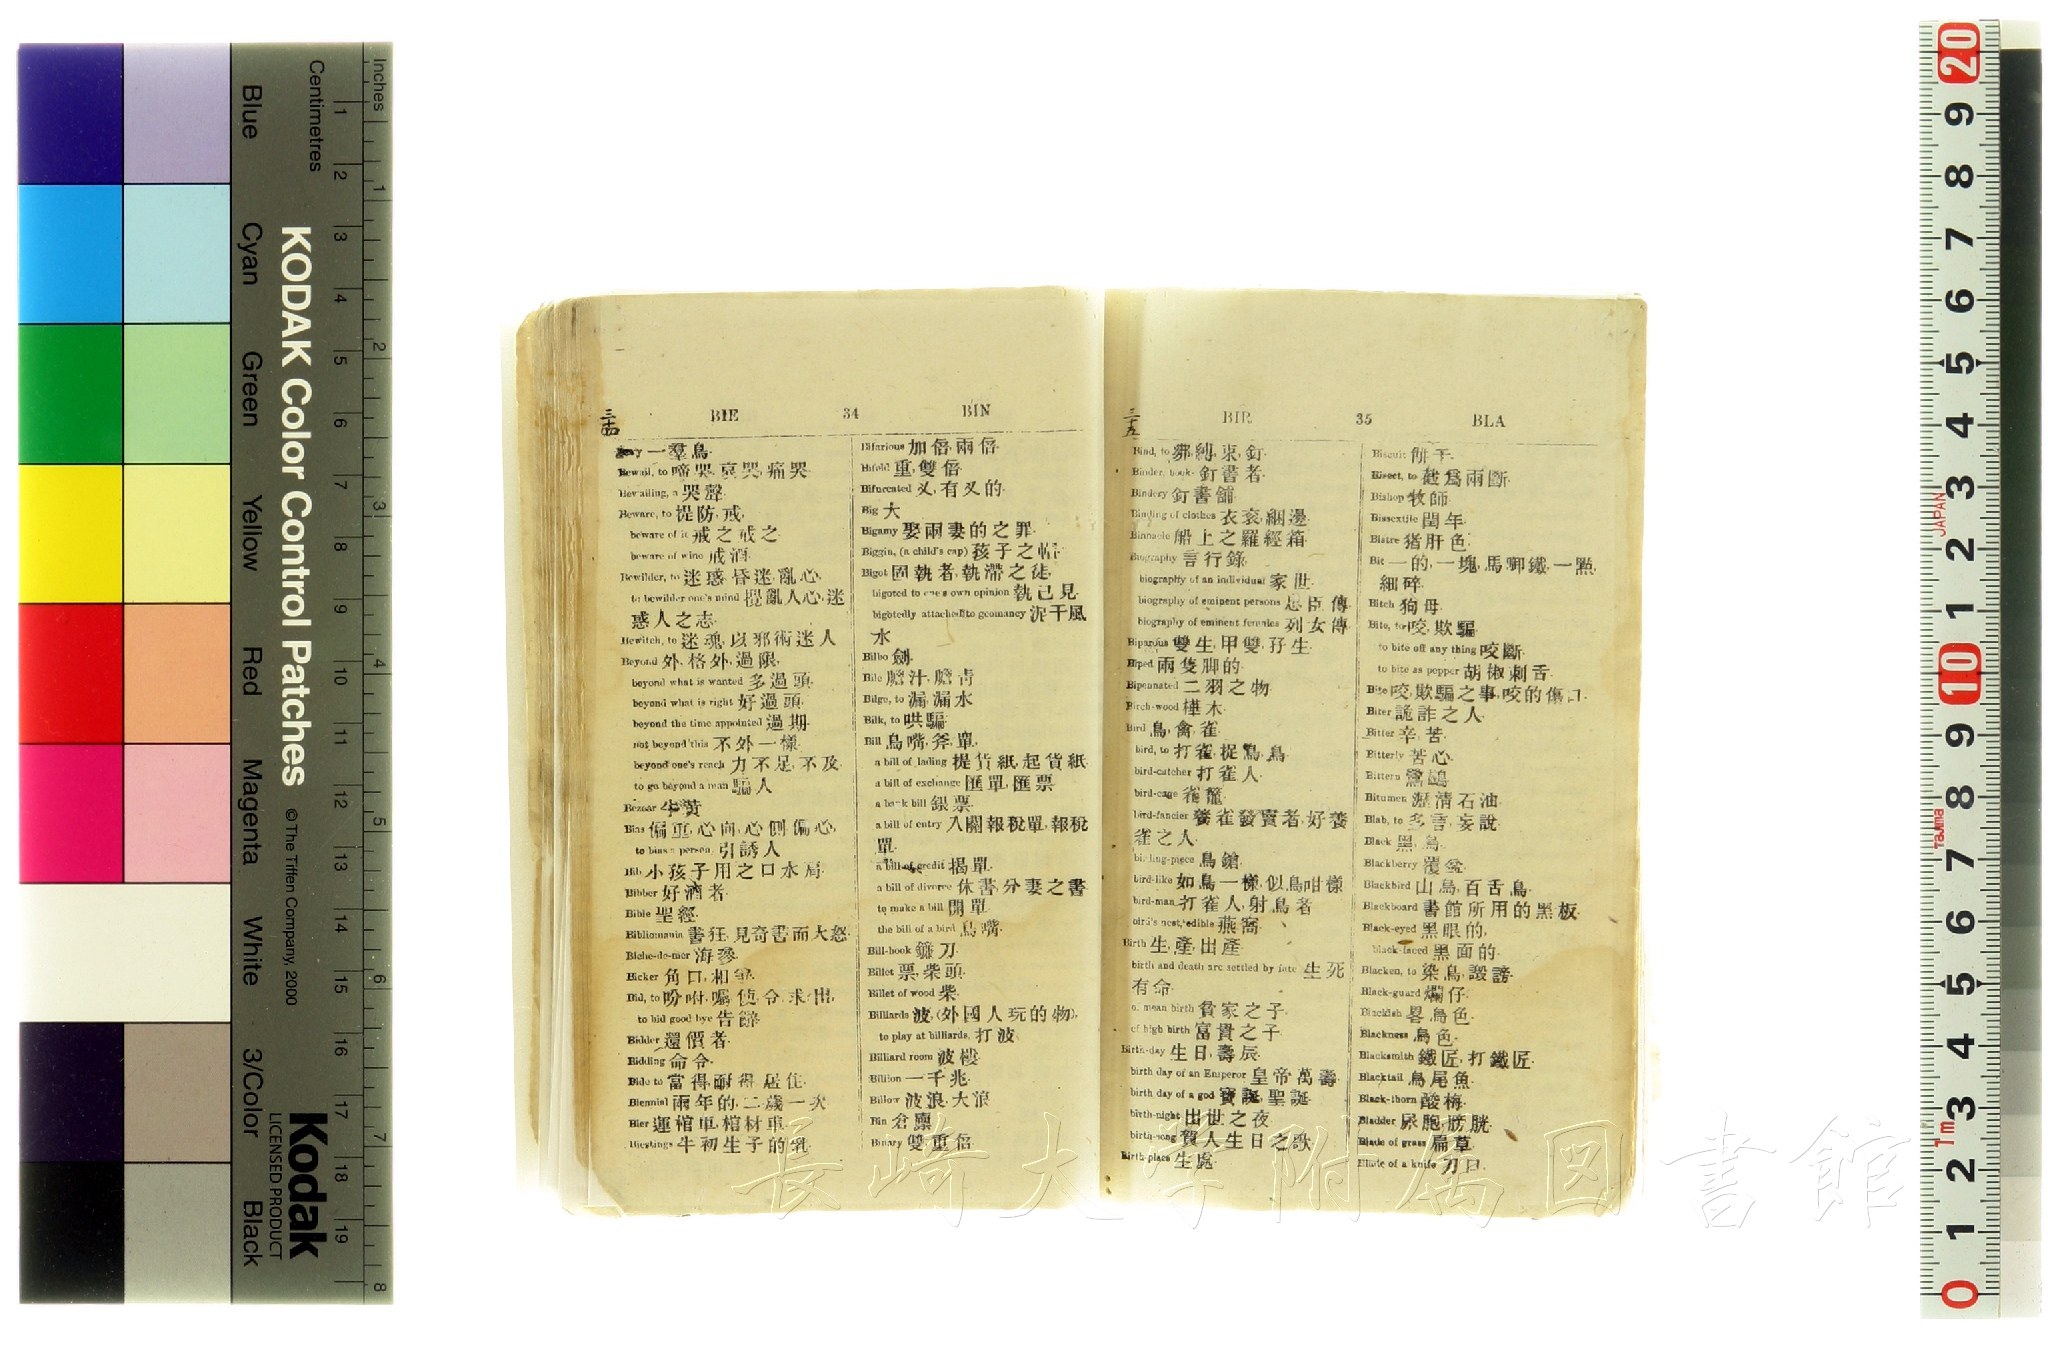 Blue
Cyan
Green
Yellow
Red
Magenta
White
3/Color
Black
Inches
Centimetres
KODAK Color Control Patches
© The Tiffen Company, 2000
Kodak
LICENSED PRODUCT
三十四
BIE 34 BIN
一羣鳥
Bewail, to 啼哭,哀哭,痛哭
Bewailing, a 哭聲
Beware, to 提防,戒
beware of it 戒之戒之
beware of wine 戒酒
Bewilder, to 迷惑,昏迷,亂心
to bewilder one's mind 攪亂人心,迷
惑人之志
Bewitch, to 迷魂,以邪術迷人
Beyond 外,格外,過限
beyond what is wanted 多過頭
beyond what is right 好過頭
beyond the time appointed 過期
not beyond this 不外一樣
beyond one's reach 力不足,不及
to go beyond a man 騙人
Bezoar 牛黃
Bias 偏重,心向,心側,偏心
to bias a person, 引誘人
Bib 小孩子用之口水肩
Bibber 好酒者
Bible 聖經
Bibliomania 書狂,見奇書而大怒
Biche-de-mer 海參
Bicker 角口,相爭
Bid, to 吩咐,囑,使,令,求,出
to bid good bye 告辭
Bidder 還價者
Bidding 命令
Bide to 當得,耐得,居住
Biennial 兩年的,二歲一次
Bier 運棺車,棺材車
Biestings 牛初生子的乳
Bifarious 加倍,兩倍
Bifold 重,雙倍
Bifurcated 乂,有乂的
Big 大
Bigamy 娶兩妻的之罪
Biggin, (a child's cap) 孩子之帽
Bigot 固執者,執滯之徒
bigoted to one's own opinion 執己見
bigotedly attached to geomancy 泥干風
水
Bilbo 劍
Bile 膽汁,膽青
Bilge, to 漏,漏水
Bilk, to 哄騙
Bill 鳥嘴,斧,單
a bill of lading 提貨紙,起貨紙
a bill of exchange 匯單,匯票
a bank bill 銀票
a bill of entry 入關報稅單,報稅
單
a bill of credit 揭單
a bill of divorce 休書,分妻之書
to make a bill 開單
the bill of a bird 鳥嘴
Bill-hook 鐮刀
Billet 票,柴頭
Billet of wood 柴
Billiards 波,(外國人玩的物),
to play at billiards, 打波
Billiard room 波樓
Billion 一千兆
Billow 波浪,大浪
Bin 倉廩
Binary 雙,重倍
三十五
BIR 35 BLA
Bind, to 綁,縛,束,釘
Binder, book- 釘書者
Bindery 釘書舖
Binding of clothes 衣衮,綑邊
Binnacle 船上之羅經箱
Biography 言行錄
biography of an individual 家世
biography of eminent persons 忠臣傳
biography of eminent females 列女傳
Biparous 雙生,甲雙,孖生
Biped 兩隻脚的
Bipennated 二羽之物
Birch-wood 樺木
Bird 鳥,禽,雀
bird, to 打雀,捉鳥
bird-catcher 打雀人
bird-cage 雀籠
bird-fancier 養雀發賣者,好養
雀之人
birding-piece 鳥鎗
bird-like 如鳥一樣,似鳥咁樣
bird-man 打雀人,射鳥者
bird's nest, edible 燕窩
Birth 生,產,出產
birth and death are settled by fate 生死
有命
a mean birth 貧家之子
of high birth 富貴之子
Birth-day 生日,壽辰
birth day of an Emperor 皇帝萬壽
birth day of a god 寶誕,聖誕
birth-night 出世之夜
birth-song 賀人生日之歌
Birth-place 生處
Biscuit 餅干
Bisect, to 截爲兩斷
Bishop 牧師
Bissextile 閏年
Bistre 猪肝色
Bit 一的,一塊,馬啣鐵,一點,
細碎
Bitch 狗母
Bite, to 咬,欺騙
to bite off any thing 咬斷
to bite as pepper 胡椒刺舌
Bite 咬,欺騙之事,咬的傷口
Biter 詭詐之人
Bitter 辛,苦
Bitterly 苦心
Bittern
Bitumen 瀝淸石油
Blab, to 多言,妄說
Black 黑,烏
Blackberry
Blackbird 山鳥,百舌鳥
Blackboard 書館所用的黑板
Black-eyed 黑眼的,
black-faced 黑面的
Blacken, to 染烏,譭謗
Black-guard 爛仔
Blackish 畧烏色
Blackness 烏色
Blacksmith 鐵匠,打鐵匠
Blacktail 烏尾魚
Black-thorn 酸梅
Bladder 尿胞,膀胱
Blade of grass 扁草
Blade of a knife 刀口
長崎大学附属図書館
JAPAN
Tajima
1m